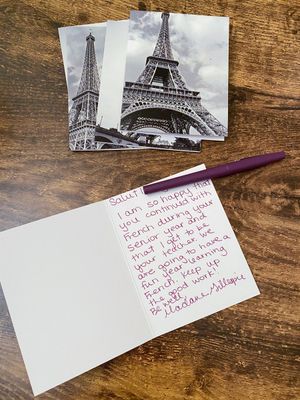 Salut!
I am so happy that
you continued with
French during your
senior year and
that I get to be
your teacher. We
are going to have a
fun year learning
French. Keep up
the good work!
Be well,
Madame Gillespie